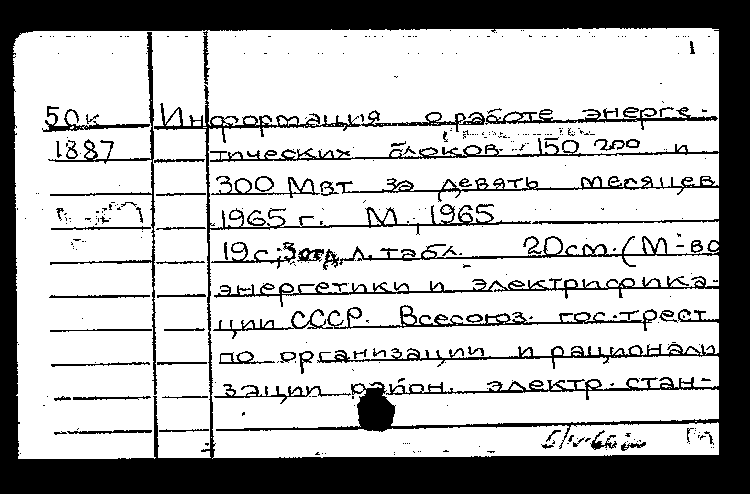 1
50к Информация о работе энерге-
1887 тических блоков 150, 200 и
300 Мвт за девять месяцев
1965 г. М., 1965
19 с; 3 отд. л. табл. 20 см. (М-во
энергетики и электрифика-
ции СССР. Всесоюз. гос. трест
по организации и рационали
зации район. электр. стан-